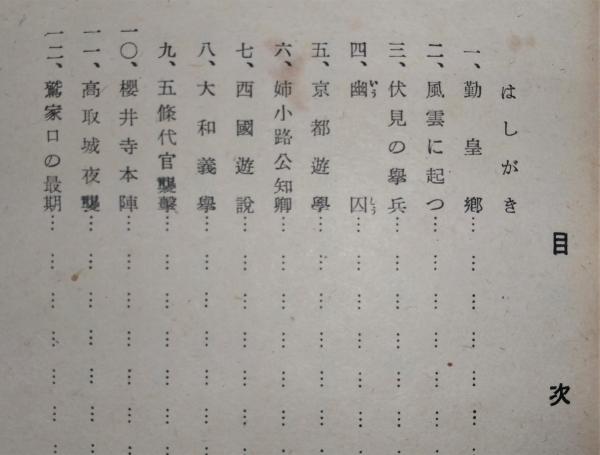 目次
はしがき
一、勤皇鄕…………………
二、風雲に起つ…………………
三、伏見の擧兵…………………
四、幽囚いうしう…………………
五、京都遊學…………………
六、姉小路公知卿…………………
七、西國遊說…………………
八、大和義擧…………………
九、五條代官襲擊…………………
一〇、櫻井寺本陣…………………
一一、高取城夜襲…………………
一二、鷲家口の最期…………………